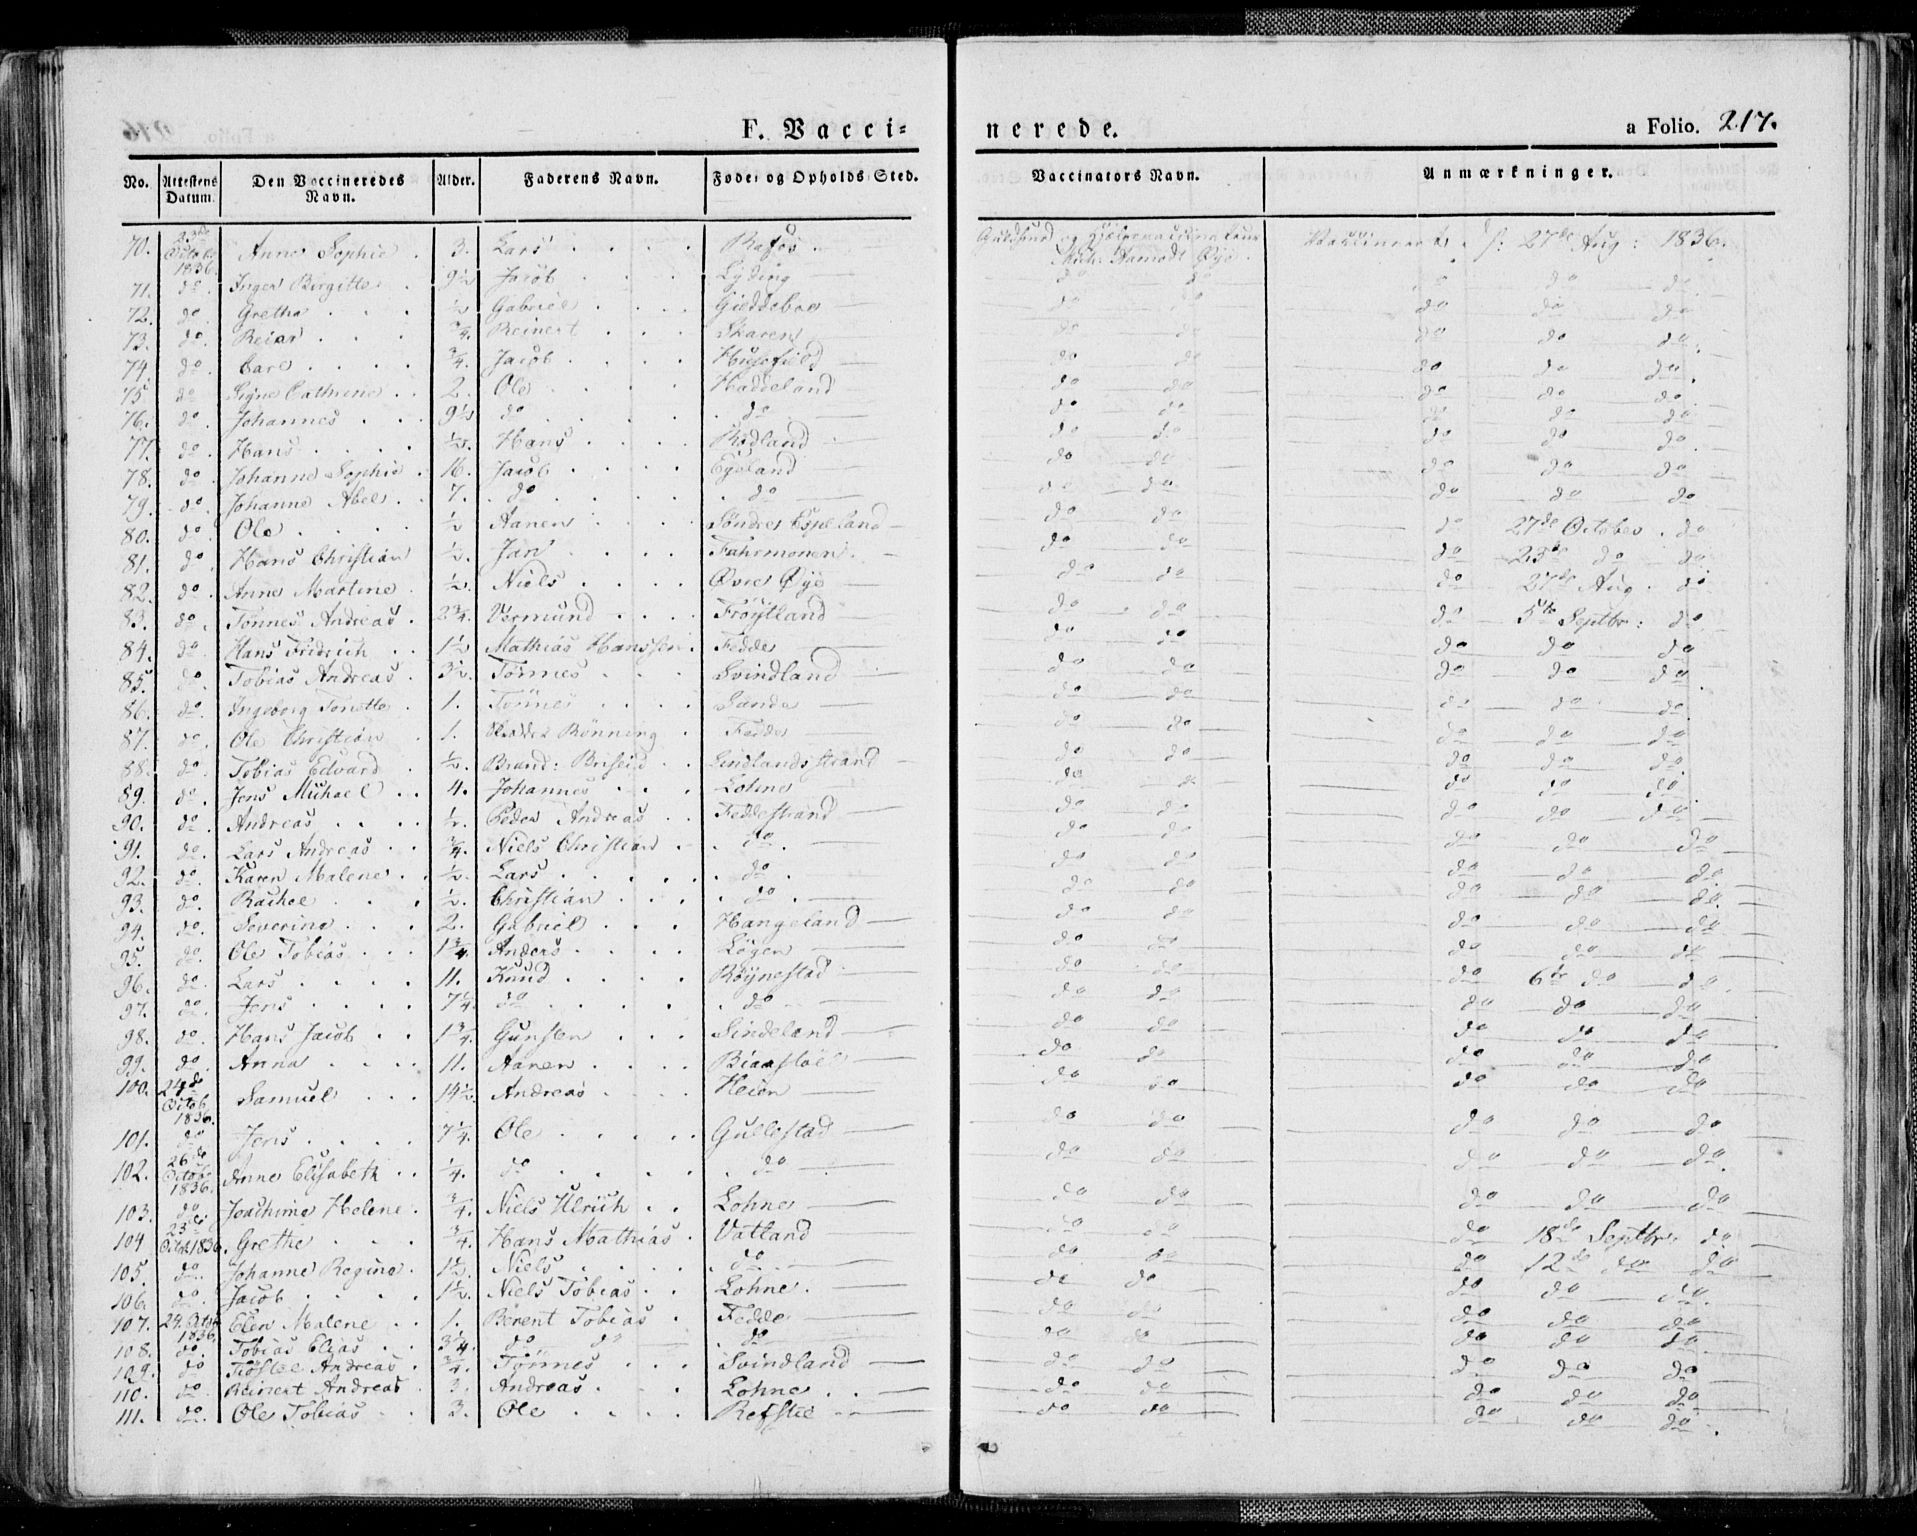 F. Vaccinerede. a Folio. 217.
No. Attestens Datum. Den Vaccineredes Navn. Alder. Faderens Navn. Føde- og Opholds Sted. Vaccinators Navn. Anmærkninger.
70. 23de Octob. 1836. Anne Sophie 3. Lars Øye 27de Aug: 1836.
71. do. Inger Birgitte 9½ Jacob Lyding do do do do do
72. do. Grethe ½ Gabriel Gieddeboe do do do do do
73. do. Reier ¾. Reinert Skaren do do do do do
74. do. ¾. Jacob do do do do do
75 do Signe Cathrine 2. Ole Haddeland do do do do do
76. do. Johannes 9½ do do do do do do do
77. do. Hans ½. Hans Rødland do do do do do
78. do. Johanne Sophie 16. Jacob Egeland do do do do do
79. do. Johanne Abel 7. do do do do do do do
80. do. Ole ½ Aanen Søndre Espeland do do do 27de October do
81. do Hans Christian ½. Jan Fahrmonen do do do 23de do do
82. do. Anne Martine ½. Niels Øvre Øye do do do 27de Aug. do
83. do. Tønnes Andreas 2¾. Frøytland do do do 5te Septbr: do
84. do. Hans Fridrich 1½ Mathias Hanssen Fedde do do do do do
85. do. Tobias Andreas 3½. Tønnes Svindland do do do do do
86. do. Ingeborg Tonette 1. Tönnes Sande do do do do do
87. do. Ole Christian 1. Rønning Fedde do do do do do
88. do. Tobias Edvard ½. Brand: Briseid Lindlands strand do do do do do
89. do. Jens Michael 4. Johannes Lohne do do do do do
90. do. Andreas ½. Peder Andreas Feddestrand do do do do do
91. do. Lars Andreas ¾. Niels Christian do do do do do do
92. do. Karen Malene ½. Lars do do do do do do
93. do. Rachel ½. Christian do do do do do do
94. do. Severine 2. Gabriel Hangeland do do do do do
95. do. Ole Tobias 1¾ Anders Løgen do do do do do
96. do. Lars 11. Knud Røynestad do do do 6te do do
97. do. Jens 7¼ do do do do do do do
98. do. Hans Jacob 1¾. Gunsten Sindeland do do do do do
99. do. Anna 11. Aanen do do do do do
100. 24de Octob. 1836. Samuel 14½. Andreas Heien do do do do do
101. do Jens 7¼. Ole Gullestad do do do do do
102. 26de Octob. 1836. Anne Elisabeth ¼. do do do do do do do
103. do Joachime Helene ¾. Niels Ulrich Lohne do do do do do
104 23de Octob. 1836. Grethe ¾. Hans Mathias Vatland do do do 18de Septbr. do
105. do. Johanne Regine 1½. Niels do do do do 12te do do
106. do. Jacob 1½. Niels Tobias Lohne do do do do do
107. 24. Octob. 1836. Elen Malene 1. Berent Tobias Fedde do do do do do
108. do. Tobias Elias 3¼ do do do do do do do do
109. do Andreas ¾. Tønnes Svindland do do do do do
110. do Reinert Andreas 3. Andreas Lohne do do do do do
111. do. Ole Tobias 3. Ole Refstie do do do do do